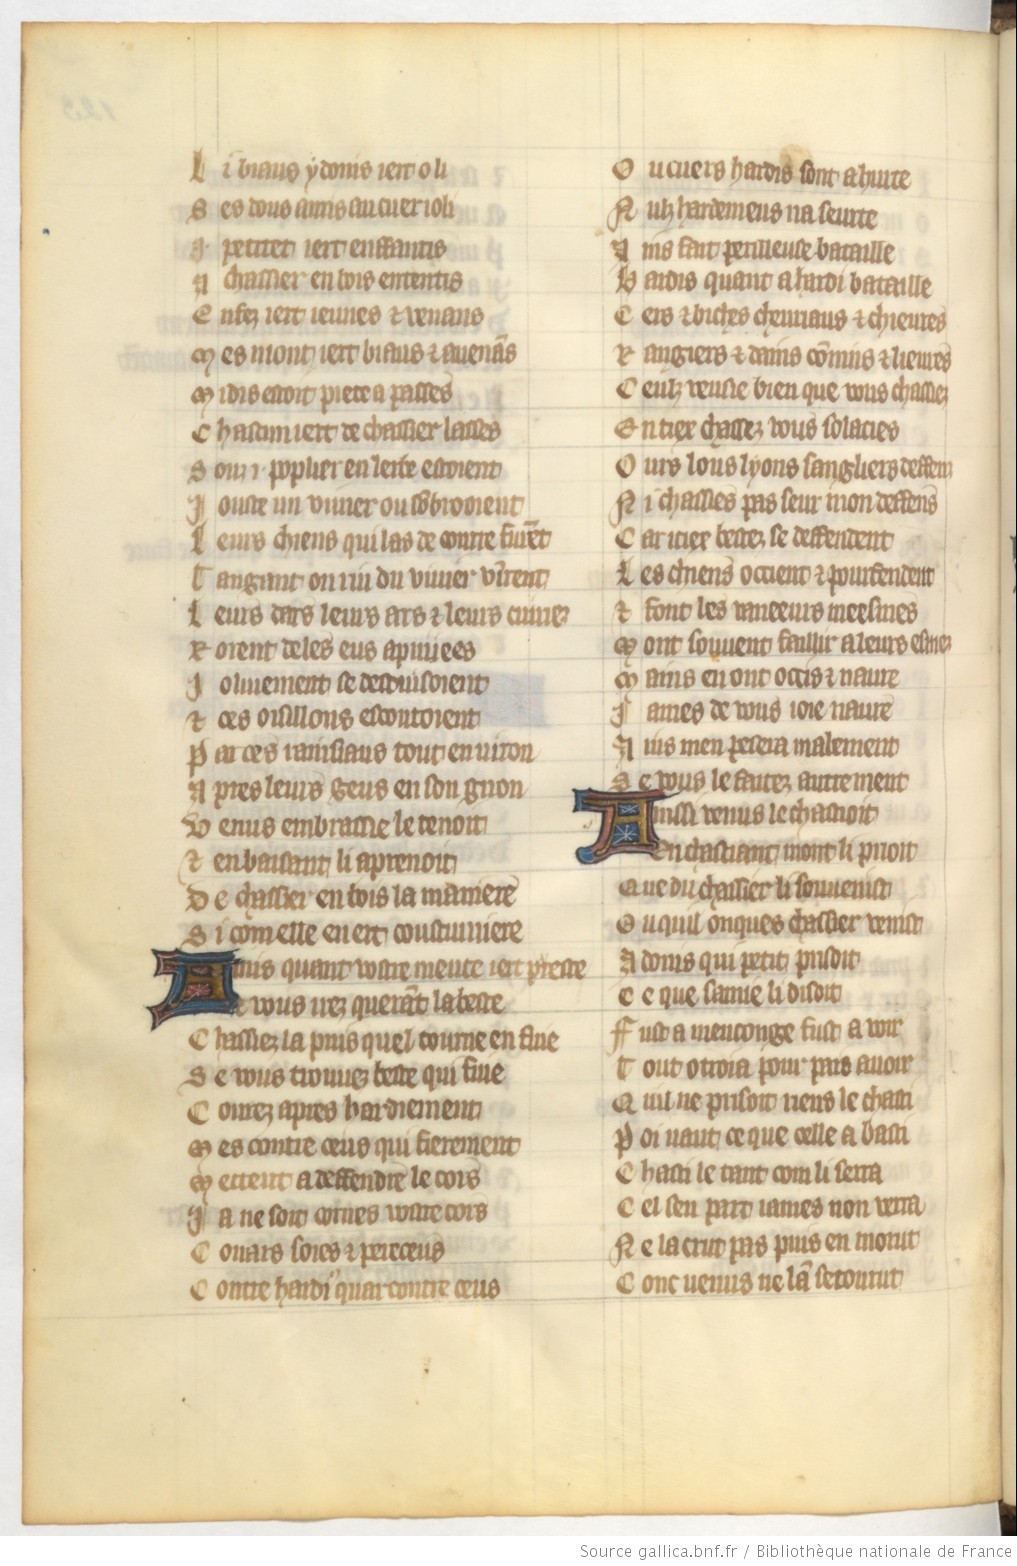 L i biaus ydonis iert o li
S es dous amis au cuer ioli
I petitet iert enffantis
A chassier en bois ententis
E nfez iert iennes ⁊ venans
M es mont iert biaus ⁊ auenãs
M idis estoit piece a passes
C hascun iert de chassier lasses
S ouz i poplier en lerbe estoient
I ouste un viuier ou sõbroioient
L eurs chiens qui las de courre furẽt
T angant ou riu du viuier vĩrent
L eurs dars leurs ars ⁊ leurs cuirie
R orent deles eus apuiees
I oliuement se deduisoient
⁊ ces oisillons escoutoient
P ar ces rainsiaus tout enuiron
A pres leurs geus en son giron
V enus embracie le tenoit
⁊ en baisant li aprenoit
D e chassier en bois la maniere
S i com elle en ert coustumiere
A mis quant vostre meute iert preste
⁊ vous irez querãt la beste
C hassiez la puis quel tourne en fuie
S e vous trouuez beste qui fuie
C ourez apres hardiement
M es contre ceus qui fierement
M ettent a deffendre le cors
I a ne soit tornes vostre cors
C ouars soies ⁊ pereceus
C ontre hardis quar contre ceus
O u cuers hardis sont a hurte
N ulz hardemens na seurte
A ins fait perilleuse bataille
H ardis quant a hardi bataille
C ers ⁊ biches cheuriaus ⁊ chieures
R angiers ⁊ dains cõnins ⁊ lieures
C eulz veusie bien que vous chassiez
E n tiex chasses vous solacies
O urs lous lyons sangliers deffens
N i chassies pas seur mon deffens
C ar itiex bestez se deffendent
L es chiens occient ⁊ pourfendent
⁊ font les veneeurs meesmes
M ont souuent faillir a leurs esmes
M ains en ont occis ⁊ naure
I ames de vous ioie naure
A ins men pesera malement
S e vous le faitez autrement
A inssi venus le chastioit
E n chastiant mont li prioit
Q ue du chastier li souuenist
O u quil onques chassier venist
A donis qui petit prisoit
C e que samie li disoit
F ust a menconge fust a voir
T out otroia pour pais auoir
Q uil ne prisoit riens le chasti
P oi vaut ce que celle a basti
C hasti le tant com li serra
C el sen part iames non verra
N e la crut pas puis en morut
C onc venus ne lã secourut
Source gallica.bnf.fr / Bibliothèque nationale de France